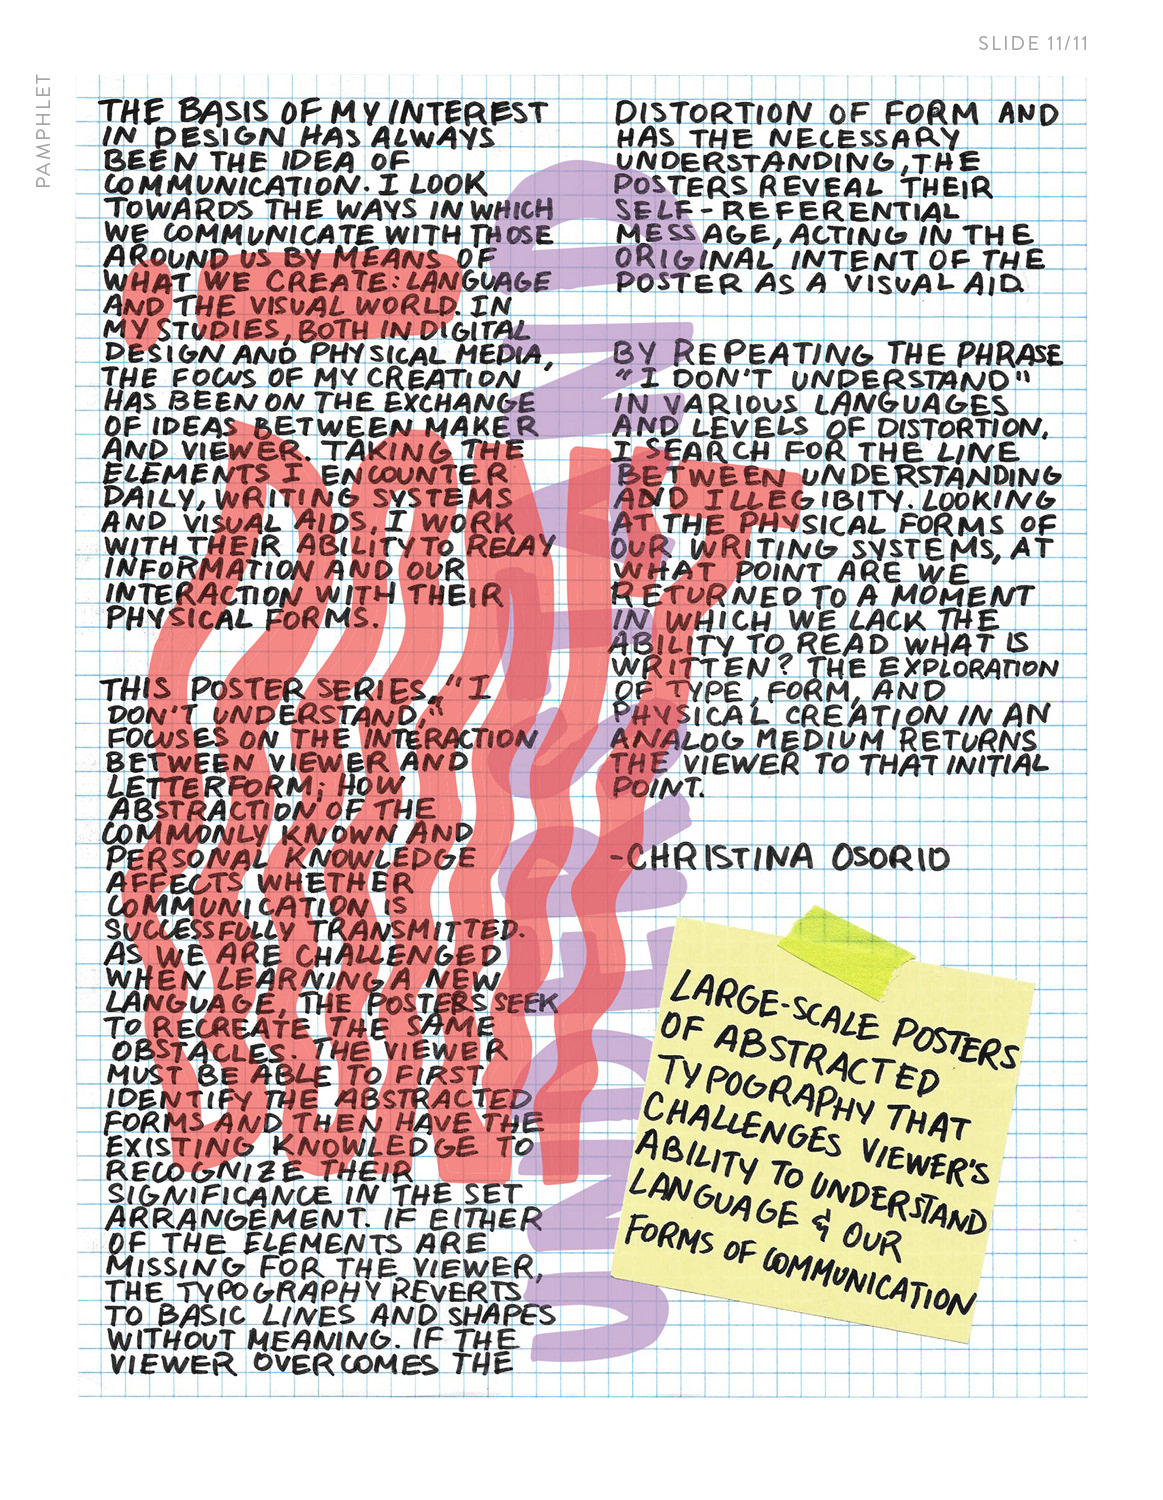 SLIDE 11/11
PAMPHLET
THE BASIS OF MY INTEREST
IN DESIGN HAS ALWAYS
BEEN THE IDEA OF
COMMUNICATION. I LOOK
TOWARDS THE WAYS IN WHICH
WE COMMUNICATE WITH THOSE
AROUND US BY MEANS OF
WHAT WE CREATE: LANGUAGE
AND THE VISUAL WORLD. IN
MY STUDIES, BOTH IN DIGITAL
DESIGN AND PHYSICAL MEDIA,
THE FOCUS OF MY CREATION
HAS BEEN ON THE EXCHANGE
OF IDEAS BETWEEN MAKER
AND VIEWER. TAKING THE
ELEMENTS I ENCOUNTER
DAILY, WRITING SYSTEMS
AND VISUAL AIDS, I WORK
WITH THEIR ABILITY TO RELAY
INFORMATION AND OUR
INTERACTION WITH THEIR
PHYSICAL FORMS.
THIS POSTER SERIES, "I
DON'T UNDERSTAND,"
FOCUSES ON THE INTERACTION
BETWEEN VIEWER AND
LETTERFORM; HOW
ABSTRACTION OF THE
COMMONLY KNOWN AND
PERSONAL KNOWLEDGE
AFFECTS WHETHER
COMMUNICATION IS
SUCCESSFULLY TRANSMITTED.
AS WE ARE CHALLENGED
WHEN LEARNING A NEW
LANGUAGE, THE POSTERS SEEK
TO RECREATE THE SAME
OBSTACLES. THE VIEWER
MUST BE ABLE TO FIRST
IDENTIFY THE ABSTRACTED
FORMS AND THEN HAVE THE
EXISTING KNOWLEDGE TO
RECOGNIZE THEIR
SIGNIFICANCE IN THE SET
ARRANGEMENT. IF EITHER
OF THE ELEMENTS ARE
MISSING FOR THE VIEWER,
THE TYPOGRAPHY REVERTS
TO BASIC LINES AND SHAPES
WITHOUT MEANING. IF THE
VIEWER OVERCOMES THE
DISTORTION OF FORM AND
HAS THE NECESSARY
UNDERSTANDING, THE
POSTERS REVEAL THEIR
SELF-REFERENTIAL
MESSAGE, ACTING IN THE
ORIGINAL INTENT OF THE
POSTER AS A VISUAL AID.
BY REPEATING THE PHRASE
"I DON'T UNDERSTAND"
IN VARIOUS LANGUAGES
AND LEVELS OF DISTORTION,
I SEARCH FOR THE LINE
BETWEEN UNDERSTANDING
AND ILLEGIBITY. LOOKING
AT THE PHYSICAL FORMS OF
OUR WRITING SYSTEMS, AT
WHAT POINT ARE WE
RETURNED TO A MOMENT
IN WHICH WE LACK THE
ABILITY TO READ WHAT IS
WRITTEN? THE EXPLORATION
OF TYPE, FORM, AND
PHYSICAL CREATION IN AN
ANALOG MEDIUM RETURNS
THE VIEWER TO THAT INITIAL
POINT.
-CHRISTINA OSORIO
I
DON'T
UNDERSTAND
LARGE-SCALE POSTERS
OF ABSTRACTED
TYPOGRAPHY THAT
CHALLENGES VIEWER'S
ABILITY TO UNDERSTAND
LANGUAGE & OUR
FORMS OF COMMUNICATION